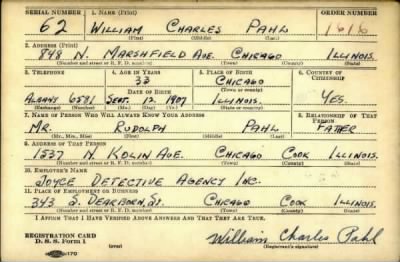 SERIAL NUMBER 1. NAME (Print) ORDER NUMBER
62 WILLIAM CHARLES PAHL 1616
(First) (Middle) (Last)
2. ADDRESS (Print)
848 N. MARSHFIELD AVE. CHICAGO ILLINOIS.
(Number and street or R. F. D. number) (Town) (County) (State)
3. TELEPHONE 4. AGE IN YEARS 5. PLACE OF BIRTH 6. COUNTRY OF CITIZENSHIP
33 CHICAGO
DATE OF BIRTH (Town or county)
ALBANY 6581 SEPT. 12 1907 ILLINOIS. YES.
(Exchange) (Number) (Mo.) (Day) (Yr.) (State or country)
7. NAME OF PERSON WHO WILL ALWAYS KNOW YOUR ADDRESS 8. RELATIONSHIP OF THAT PERSON
MR. RUDOLPH PAHL FATHER
(Mr., Mrs., Miss) (First) (Middle) (Last)
9. ADDRESS OF THAT PERSON
1537 N. KOLIN AVE. CHICAGO COOK ILLINOIS.
(Number and street or R. F. D. number) (Town) (County) (State)
10. EMPLOYER'S NAME
JOYCE DETECTIVE AGENCY INC.
11. PLACE OF EMPLOYMENT OR BUSINESS
343 S. DEARBORN, ST. CHICAGO COOK ILLINOIS.
(Number and street or R. F. D. number) (Town) (County) (State)
I AFFIRM THAT I HAVE VERIFIED ABOVE ANSWERS AND THAT THEY ARE TRUE.
REGISTRATION CARD
D. S. S. Form 1 (over) William Charles Pahl
(Registrant's signature)